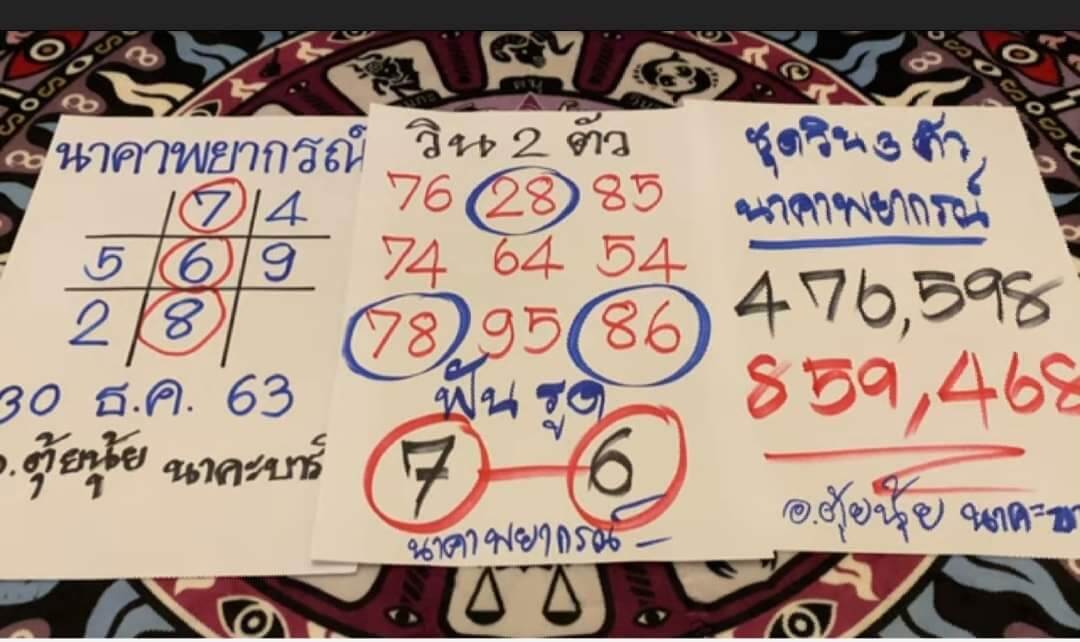 นาคาพยากรณ์
7 4
5 6 9
2 8
30 ธ.ค. 63
อ.ตุ้ยนุ้ย นาคะบารี
วิน 2 ตัว
76 28 85
74 64 54
78 95 86
ฟันรูด
7 - 6
นาคาพยากรณ์
ชุดวิน 3 ตัว
นาคาพยากรณ์
476,598
859,468
อ.ตุ้ยนุ้ย นาคะบา